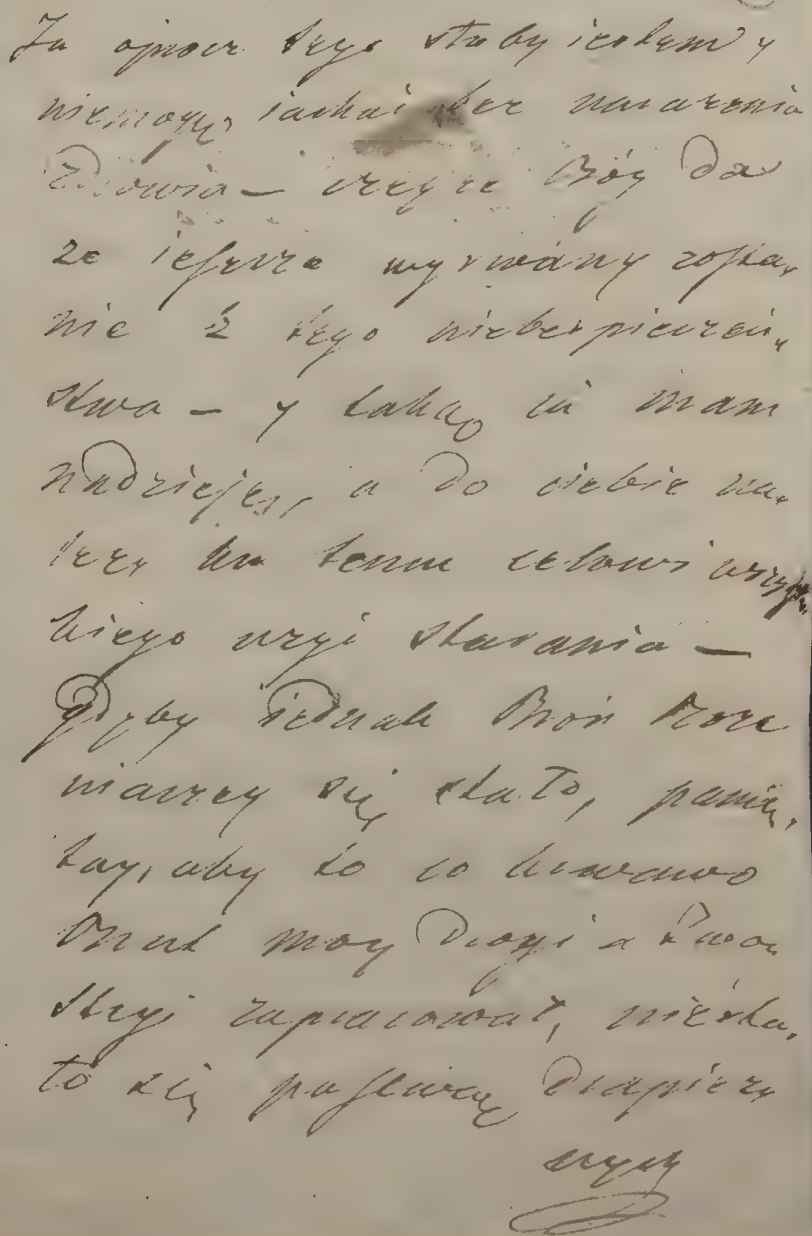 Ja oprocz tego słaby iestem y
niemogę iachać bez narażenia
Zdrowia – Bóg da
że ieszcze wyrwány zosta,
nie z tego niebespieczeń,
stwa – y taką iá mam
nadzieję, a do ciebie na,
leży ku temu celowi wszyst,
kiego użyi starania –
gdyby iednak Broń Boże
niaczey się stało, pamię,
tay, aby to co krwawo
Brat moy drogi a twoy
stryi zapracował, niesta,
ło się pastwą drapież,
nych